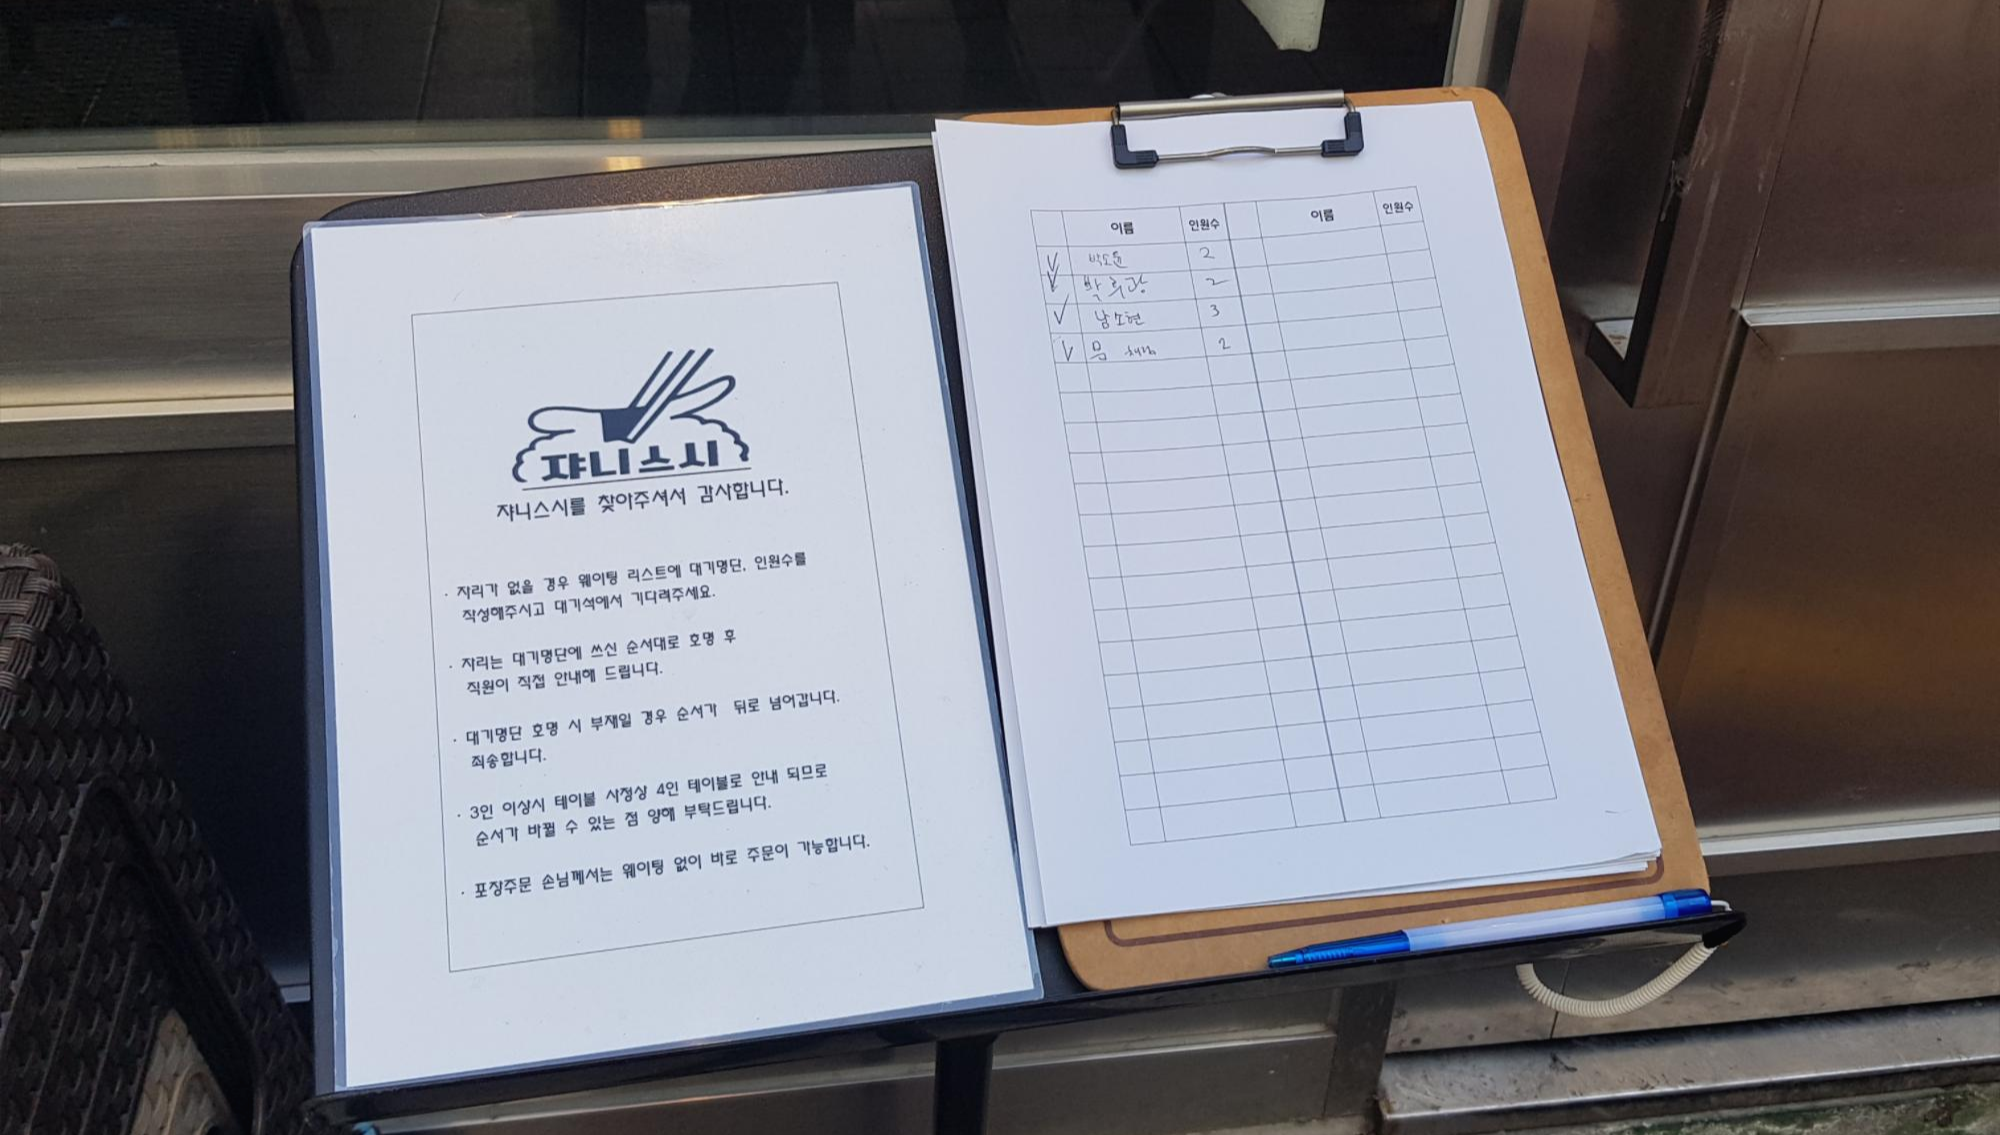 쟈니스시
쟈니스시를 찾아주셔서 감사합니다.
· 자리가 없을 경우 웨이팅 리스트에 대기명단, 인원수를
작성해주시고 대기석에서 기다려주세요.
· 자리는 대기명단에 쓰신 순서대로 호명 후
직원이 직접 안내해 드립니다.
· 대기명단 호명 시 부재일 경우 순서가 뒤로 넘어갑니다.
죄송합니다.
· 3인 이상시 테이블 사정상 4인 테이블로 안내 되므로
순서가 바뀔 수 있는 점 양해 부탁드립니다.
· 포장주문 손님께서는 웨이팅 없이 바로 주문이 가능합니다.
이름 인원수 이름 인원수
박도윤 2
2
남소현 3
2